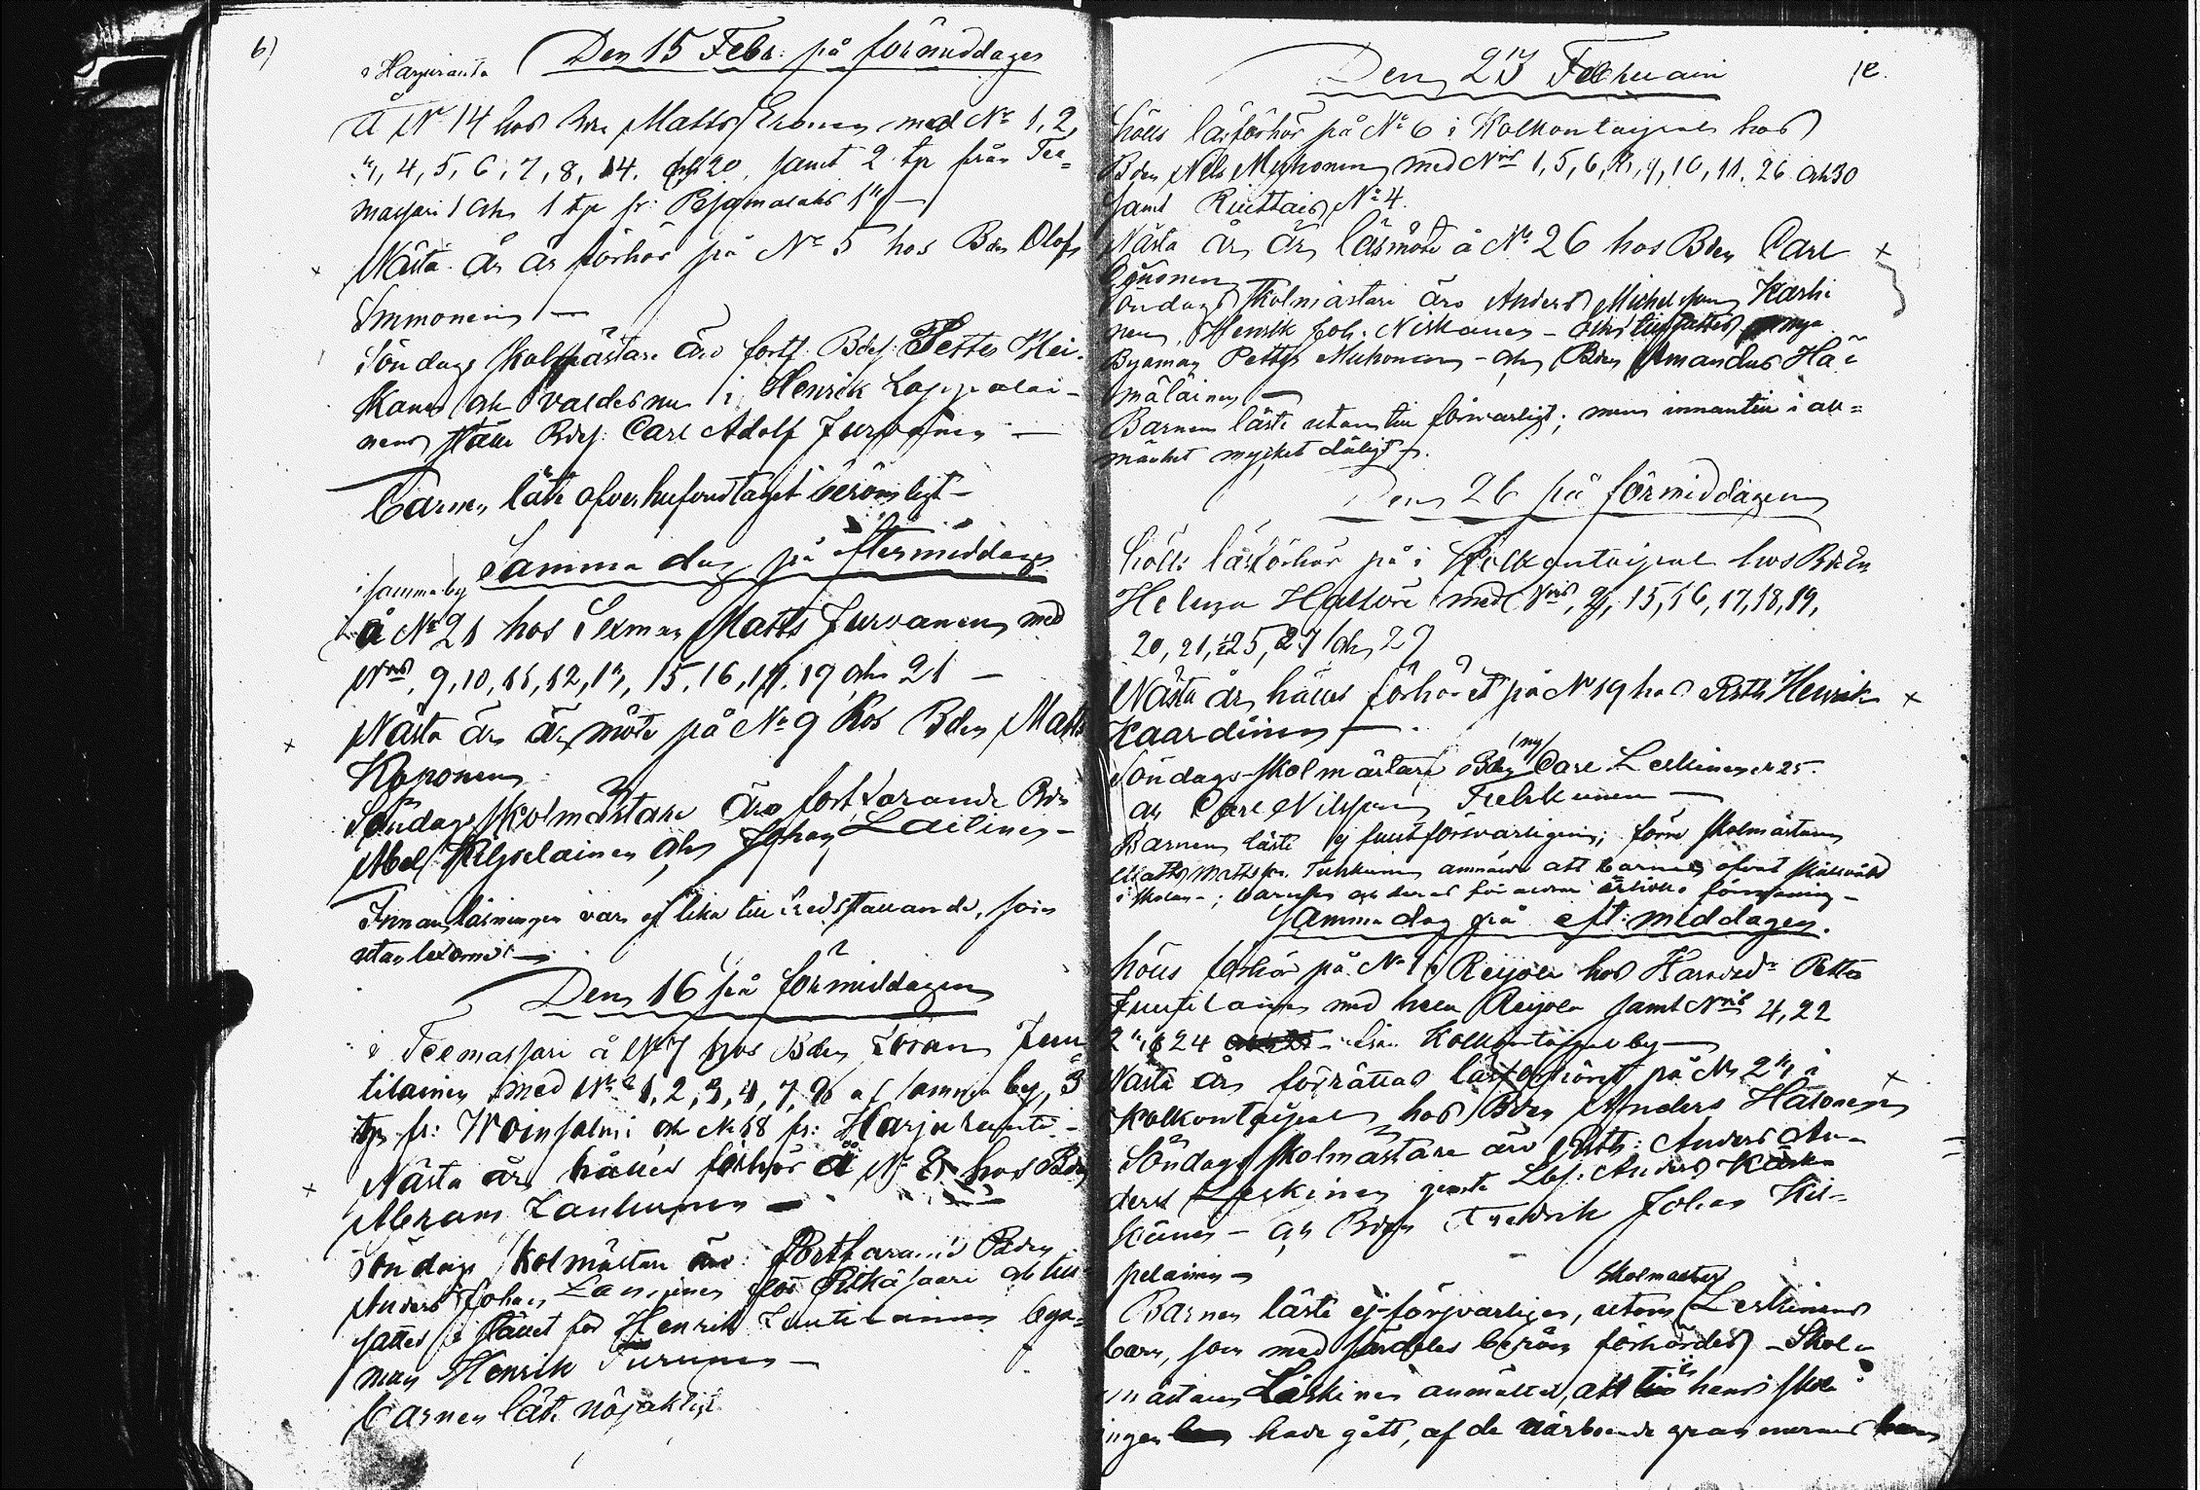 6)
Den 15 Febr: på förmiddagen
i Harjuranta
å No 14 hos Bde Matts Eronen med No 1, 2,
3, 4, 5, 6, 7, 8, 14. och 20, samt 2 tp från Tee-
massari 1 och 1 tp fr:
Nästa år är förhör på No 5 hos Bden Olof
Immonen —
Söndags skolmästare äro fortf. Bdes: Petter Hei-
kanen och valdes nu i Henrik Lappalai-
nens ställe Bdes: Carl Adolf Jurvanen —
Barnen läste öfverhufvudtaget berömligt —
Samma dag på eftermiddagen
i samma by
å No 21 hos Sexman Matts Jurvanen med
Nris 9, 10, 11, 12, 13, 15, 16, 17, 19 och 21 —
Nästa år är möte på No 9 hos Bden Matts
Koponen
Söndags skolmästare äro fortfarande Bde
Abel Kiljselainen och Johan Laitinen —
Innanläsningen var ej lika tillfredsställande, som
utanlexorna —
Den 16 på förmiddagen
i Teemassari å No 7 hos Bden Göran Juu
tilainen med No 1, 2, 3, 4, 7, 8 af samma by, 3
tp fr: Woinsalmi och No 18 fr: Harjuranta —
Nästa år hålles förhör å No 8 hos Bden
Abram Laukunen —
Söndags skolmästare äro: Fortfarande Bden
Anders Johan för Pitkäsaari och till
sattes i stället för Henrik Juutilainen bya-
man Henrik Turunen —
Barnen läste nöjaktigt
Den 23 Februari
hölls läsförhör på No 6 i Kolkontaipal hos
Bden Nils Myhonen med Nris 1, 5, 6, 8, 9, 10, 11, 26 och 30
samt No 4.
Nästa år är läsmöte å No 26 hos Bden Carl
Söndags skolmästare äro Anders Michelsson Karhi
nen, Henrik Joh: Niskanen — och tillsattes nya
Byaman Petter Muhonen — och Bden Amandus Hä-
mäläinen —
Barnen läste utantill försvarligt; men innantill i all-
mänhet mycket dåligt —.
Den 26 på förmiddagen
hölls läsförhör på i Kolkontaipal hos Bden
Helena Hattore med Nris, 2, 15, 16, 17, 18, 19,
20, 21, 25, 27 och 29
Nästa år hålles förhöret på No 19 hos Rstth Henrik
Kaardinen —.
Söndags-skolmästare Bden (ny) Carl Leskinen No 25.
och Carl Nilsson —
Barnen läste ej fullt försvarligen; förre skolmästaren
Matts Mattsson Turkunen anmälde att barnen
i skolan —; barnen och deras föräldrar
Samma dag på eft:middagen.
hölls förhör på No 1 i Reijola hos Petter
Juutilainen med hela Reijola samt Nris 4, 22
23 & 24 från Kolkontaipal by —
Nästa år förrättas läsförhöret på No 23 i
Kolkontaipal hos Bden Anders Hätönen
Söndags skolmästare äro Rstth: Anders An-
ders Leskinen Anders
— och Bden Fredrik Johan Kil-
pelainen —
Barnen läste ej försvarligen, utom skolmästar Leskinens
barn, som med särdeles beröm förhördes — Skol-
mästaren Leskinen anmälte, att till hans skola
ingen hade gått, af de närboende grannarnes barn